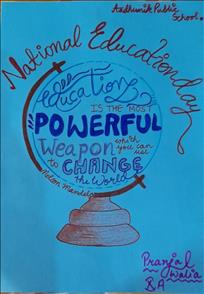 Aadhunik Public
School.
National Education day
education
IS THE MOST
POWERFUL
Weapon which
you can use
to CHANGE
the World
Nelson Mandela
Pranjal
Walia
8A